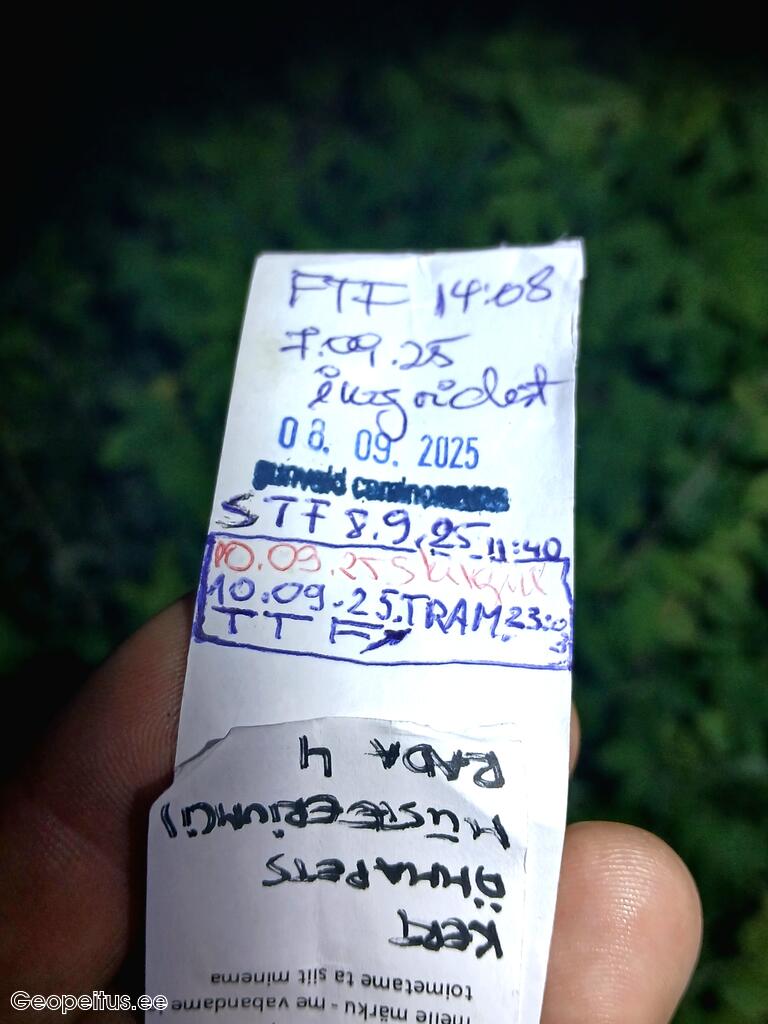 FTF 14:08
7.09.25
ingridest
08. 09. 2025
STF 8.9.25 11:40
10.09.25
10.09.25. TRAM 23:03
TTF
KERT
ÖHHAPETS
MÜSTEERIUMÜS
RADA 4
toimetame ta siit minema
meile märku - me vabandame
Geopeitus.ee